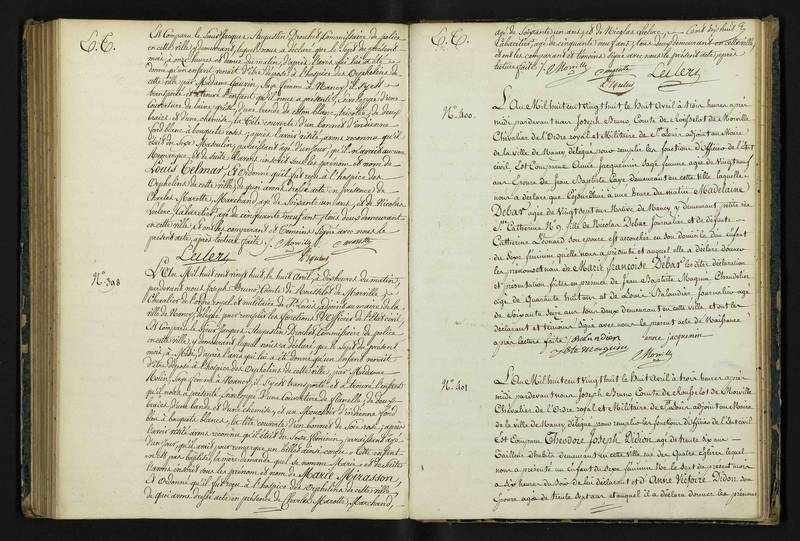 E.C.
Est Comparu le Sieur Jacques Augustin Brochot Commissaire de police
en cette ville, y demeurant, lequel nous a déclaré que le Sept du présent
mois, à onze heures et demie du matin, d'après l'avis qui lui a été
donné qu'un enfant venait d'être déposé à l'hospice des Orphelins de
cette ville, par Madame
transporté et a trouvé l'enfant qu'il nous a présenté, enveloppé d'une
Couverture de laine grise, d'une bande de coton blanc, tricotée, de deux
braies et d'une chemise, la tête couverte d'un bonnet d'indienne
fond blanc à bouquets roses; après l'avoir visité, avons reconnu qu'il
était du Sexe Masculin, paraissant âgé d'un jour, qu'il n'avait aucune
Remarque; et de suite l'avons inscrit sous les prénom et nom de
Louis Telmar, et Ordonné qu'il fût reçu à l'hospice des
Orphelins de cette ville, de quoi avons dressé acte en présence de
Charles Marotte, Marchand, agé de Soixante un ans, et de Nicolas
Leclerc Cabaretier, agé de cinquante neuf ans, tous deux demeurant
en cette ville, et ont les comparant et témoins Signé avec nous le
présent acte, après lecture faite. J. Morville
Leclerc
No. 398
L'An Mil huit cent vingt huit, le huit Avril, à dix heures du matin,
pardevant nous Joseph Bruno, Comte de Rousselot de Morville,
Chevalier de l'ordre royal et militaire de St. Louis, adjoint au maire de la
ville de Nancy, délégué pour remplir les fonctions d'Officier de l'Etat civil,
Est Comparu le Sieur Jacques Augustin Brochot Commissaire de police
en cette ville, y demeurant, lequel nous a déclaré que le Sept du présent
mois, à Midi, d'après l'avis qui lui a été donné qu'un enfant venait
d'être déposé à l'hospice des Orphelins de cette ville, par Madame
transporté et a trouvé l'enfant
qu'il nous a présenté, enveloppé d'une Couverture de flanelle, de deux
braies, d'une bande et d'une chemise, et un d'indienne fond
bleu à bouquets blancs, la tête couverte d'un bonnet de Soie noir; après
l'avoir visité avons reconnu qu'il était du Sexe féminin, paraissant agé
d'un jour, qu'il avait pour remarque un billet ainsi conçu: Cette enfant
n'est pas baptisée, la mère demande qu'elle se nomme Marie, et de suite
l'avons inscrit sous les prénom et nom de Marie Mirasson,
Et Ordonné qu'il fût reçu à l'hospice des Orphelins de cette ville,
de quoi avons dressé acte en présence de Charles Marotte, Marchand,
E.C.
agé de Soixante un ans, et de Nicolas Leclerc
Cabaretier, agé de cinquante neuf ans, tous deux demeurant en cette ville,
et ont les comparant et témoins Signé avec nous le présent acte, après
lecture faite. J. Morville
Leclerc
No. 400
L'An Mil huit cent vingt huit le huit Avril à trois heures après
midi, pardevant nous Joseph Bruno Comte de Rousselot de Morville
Chevalier de l'Ordre royal et Militaire de St. Louis, adjoint au Maire
de la ville de Nancy, délégué pour remplir les fonctions d'Officier de l'Etat
civil, Est Comparue Anne Jacquemin Sage femme agée de vingt neuf
ans Epouse de Jean Baptiste demeurant en cette ville, laquelle
nous a déclaré que Cejourd'hui à une heure du matin Madelaine
Debar agée de vingt sept ans Native de Nancy y demeurant petite rue
Ste. Catherine No. 9, fille de Nicolas Debar Journalier et de défunte
Catherine Leonard Son épouse est accouchée en son domicile d'un Enfant
du Sexe féminin qu'elle nous a présenté et auquel elle a déclaré donner
les prénoms et nom de Marie Françoise Debar, les dites déclaration
et présentation faites en présence de Jean Baptiste Maguin Chaudelier
agé de Quarante huit ans et de Louis Valandion Journalier agé
de Soixante Seize ans tous deux demeurant en cette ville et ont les
déclarant et témoins Signé avec nous le présent acte de Naissance
après lecture faite. Valandion anne jacquemin
Bte Maguin Morville
No. 401
L'An Mil huit cent vingt huit le huit Avril à trois heures après
midi, pardevant nous Joseph Bruno Comte de Rousselot de Morville
Chevalier de l'Ordre royal et Militaire de St. Louis, adjoint au Maire
de la ville de Nancy, délégué pour remplir les fonctions d'Officier de l'Etat civil
Est Comparu Theodore Joseph Didon agé de trente six ans
Tailleur d'habits demeurant en cette ville rue des Quatre Eglises lequel
nous a présenté un Enfant du Sexe féminin Née le Sept du présent mois
à dix heures du Soir de lui déclarant et d'Anne Victoire Didon Son
Epouse agée de trente sept ans et auquel il a déclaré donner les prénoms